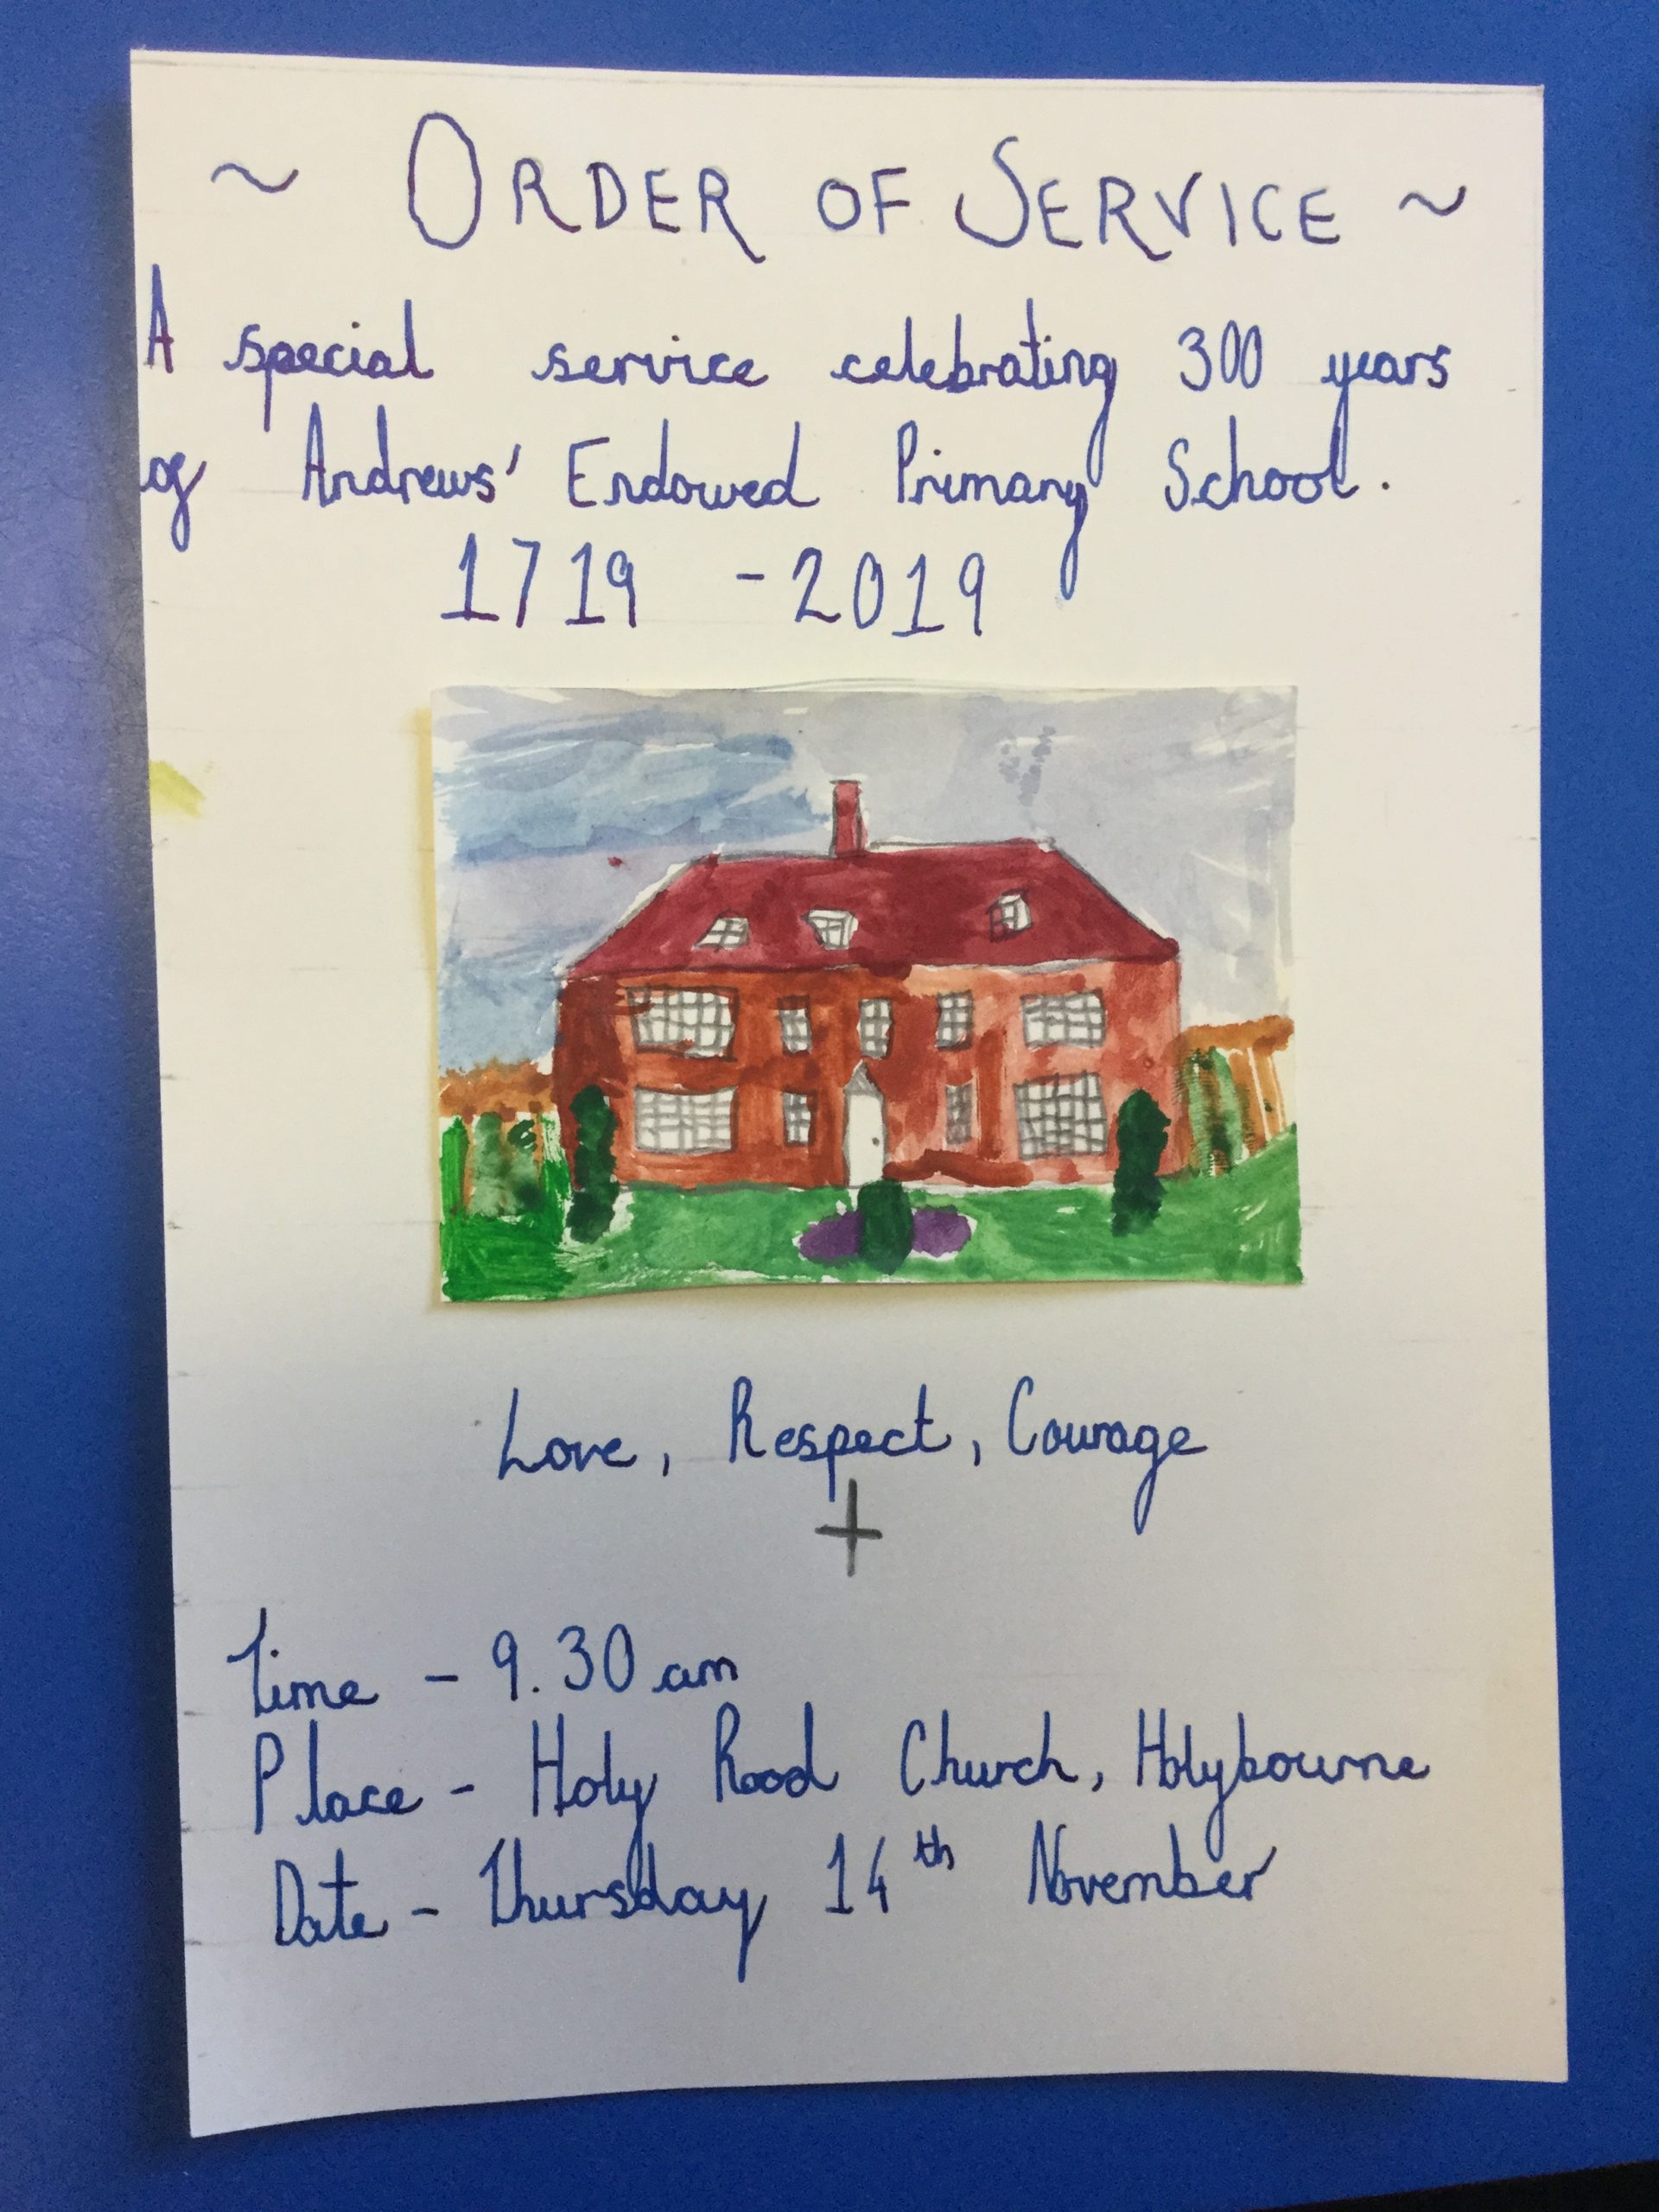 ~ ORDER OF SERVICE ~
A special service celebrating 300 years
of Andrews' Endowed Primary School.
1719 - 2019
Love, Respect, Courage
+
Time - 9.30 am
Place - Holy Rood Church, Holybourne
Date - Thursday 14th November